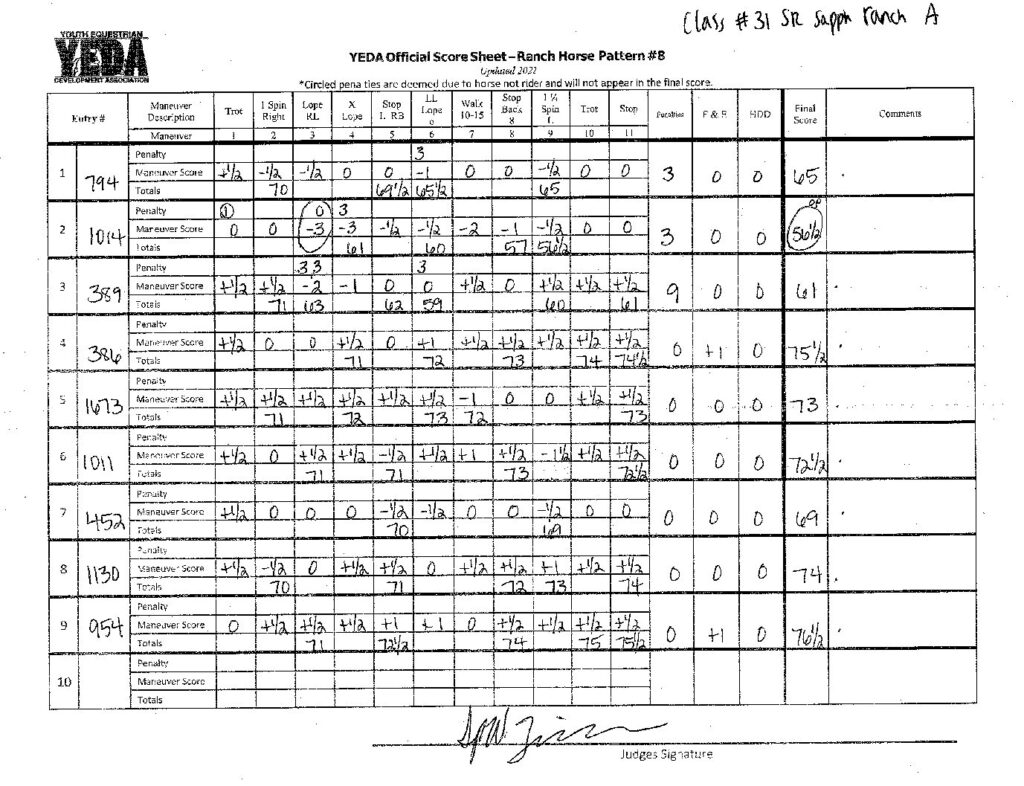 Class #31 SR Sapph ranch A
YOUTH EQUESTRIAN
YEDA
DEVELOPMENT ASSOCIATION
YEDA Official Score Sheet – Ranch Horse Pattern #8
Updated 2022
*Circled penalties are deemed due to horse not rider and will not appear in the final score.
Entry # Maneuver Description Trot 1 Spin Right Lope RL X Lope Stop L RB LL Lope o Walk 10-15 Stop Back 8 1 ¼ Spin L Trot Stop Penalties F & E HDD Final Score Comments
Maneuver 1 2 3 4 5 6 7 8 9 10 11
Penalty 3
1 794 Maneuver Score +½ -½ -½ 0 0 -1 0 0 -½ 0 0 3 0 0 65
Totals 70 69½ 65½ 65
Penalty 1 0 3
2 1014 Maneuver Score 0 0 -3 -3 -½ -½ -2 -1 -½ 0 0 3 0 0 OP 56½
Totals 61 60 57 56½
Penalty 33 3
3 389 Maneuver Score +½ +½ -2 -1 0 0 +½ 0 +½ +½ +½ 9 0 0 61
Totals 71 63 62 59 60 61
Penalty
4 386 Maneuver Score +½ 0 0 +½ 0 +1 +½ +½ +½ +½ +½ 0 +1 0 75½
Totals 71 72 73 74 74½
Penalty
5 1673 Maneuver Score +½ +½ +½ +½ +½ +½ -1 0 0 +½ +½ 0 0 0 73
Totals 71 72 73 72 73
Penalty
6 1011 Maneuver Score +½ 0 +½ +½ -½ +½ +1 +½ -1½ +½ +½ 0 0 0 72½
Totals 71 71 73 72½
Penalty
7 452 Maneuver Score +½ 0 0 0 -½ -½ 0 0 -½ 0 0 0 0 0 69
Totals 70 69
Penalty
8 1130 Maneuver Score +½ -½ 0 +½ +½ 0 +½ +½ +1 +½ +½ 0 0 0 74
Totals 70 71 72 73 74
Penalty
9 954 Maneuver Score 0 +½ +½ +½ +1 +1 0 +½ +½ +½ +½ 0 +1 0 76½
Totals 71 72½ 74 75 75½
Penalty
10 Maneuver Score
Totals
Judges Signature